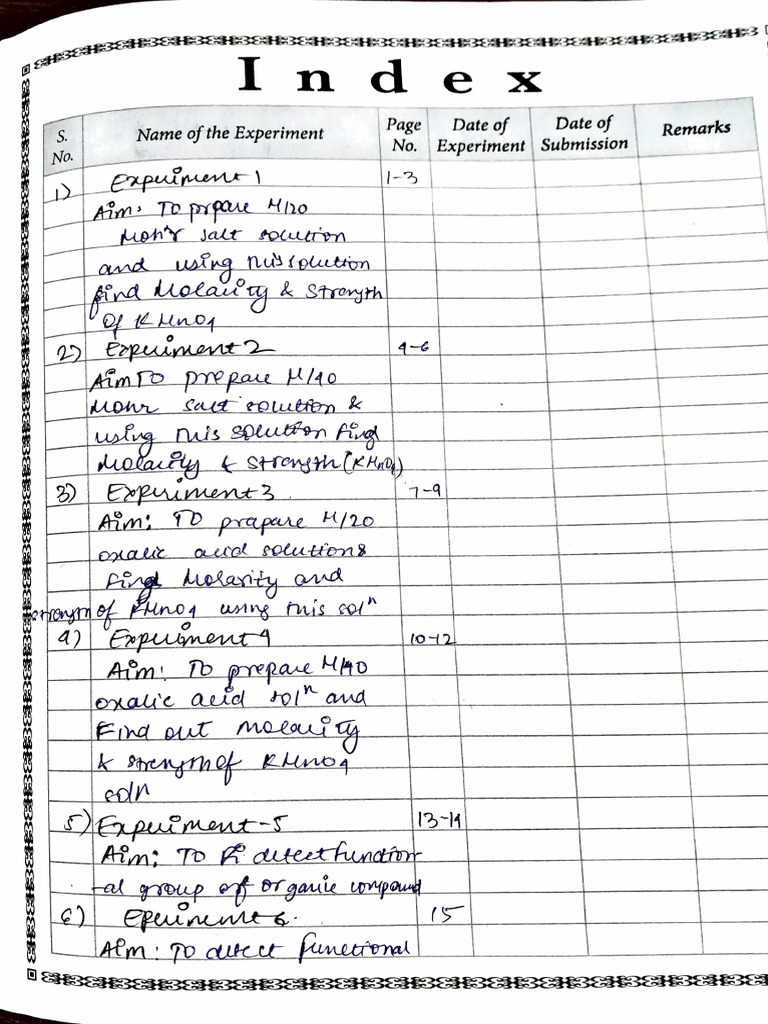 Index
S. No. Name of the Experiment Page No. Date of Experiment Date of Submission Remarks
1) Experiment 1 1-3
Aim: To prpare M/20
Mohr salt solution
and using this solution
find Molarity & Strength
of KMnO4
2) Experiment 2 4-6
Aim To prepare M/40
Mohr salt solution &
using this solution find
Molarity & strength (KMnO4)
3) Experiment 3 7-9
Aim: To prapare M/20
oxalic acid solution &
find Molarity and
strength of KMnO4 using this solⁿ
4) Experiment 4 10-12
Aim: To prepare M/40
oxalic acid solⁿ and
Find out molarity
& strength of KMnO4
soln
5) Experiment-5 13-14
Aim: To detect function-
-al group of organic compound
6) Eperiment 6. 15
Aim: To detect functional